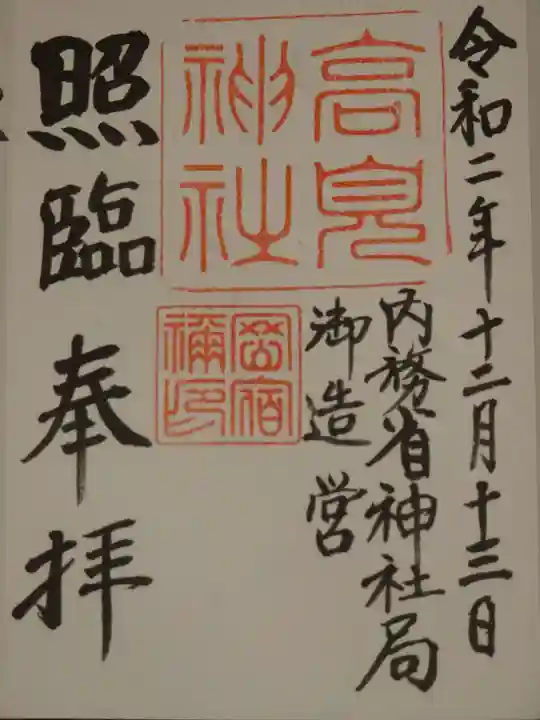 令和二年十二月十三日
内務省神社局
御造営
高見
神社
照臨
奉拝